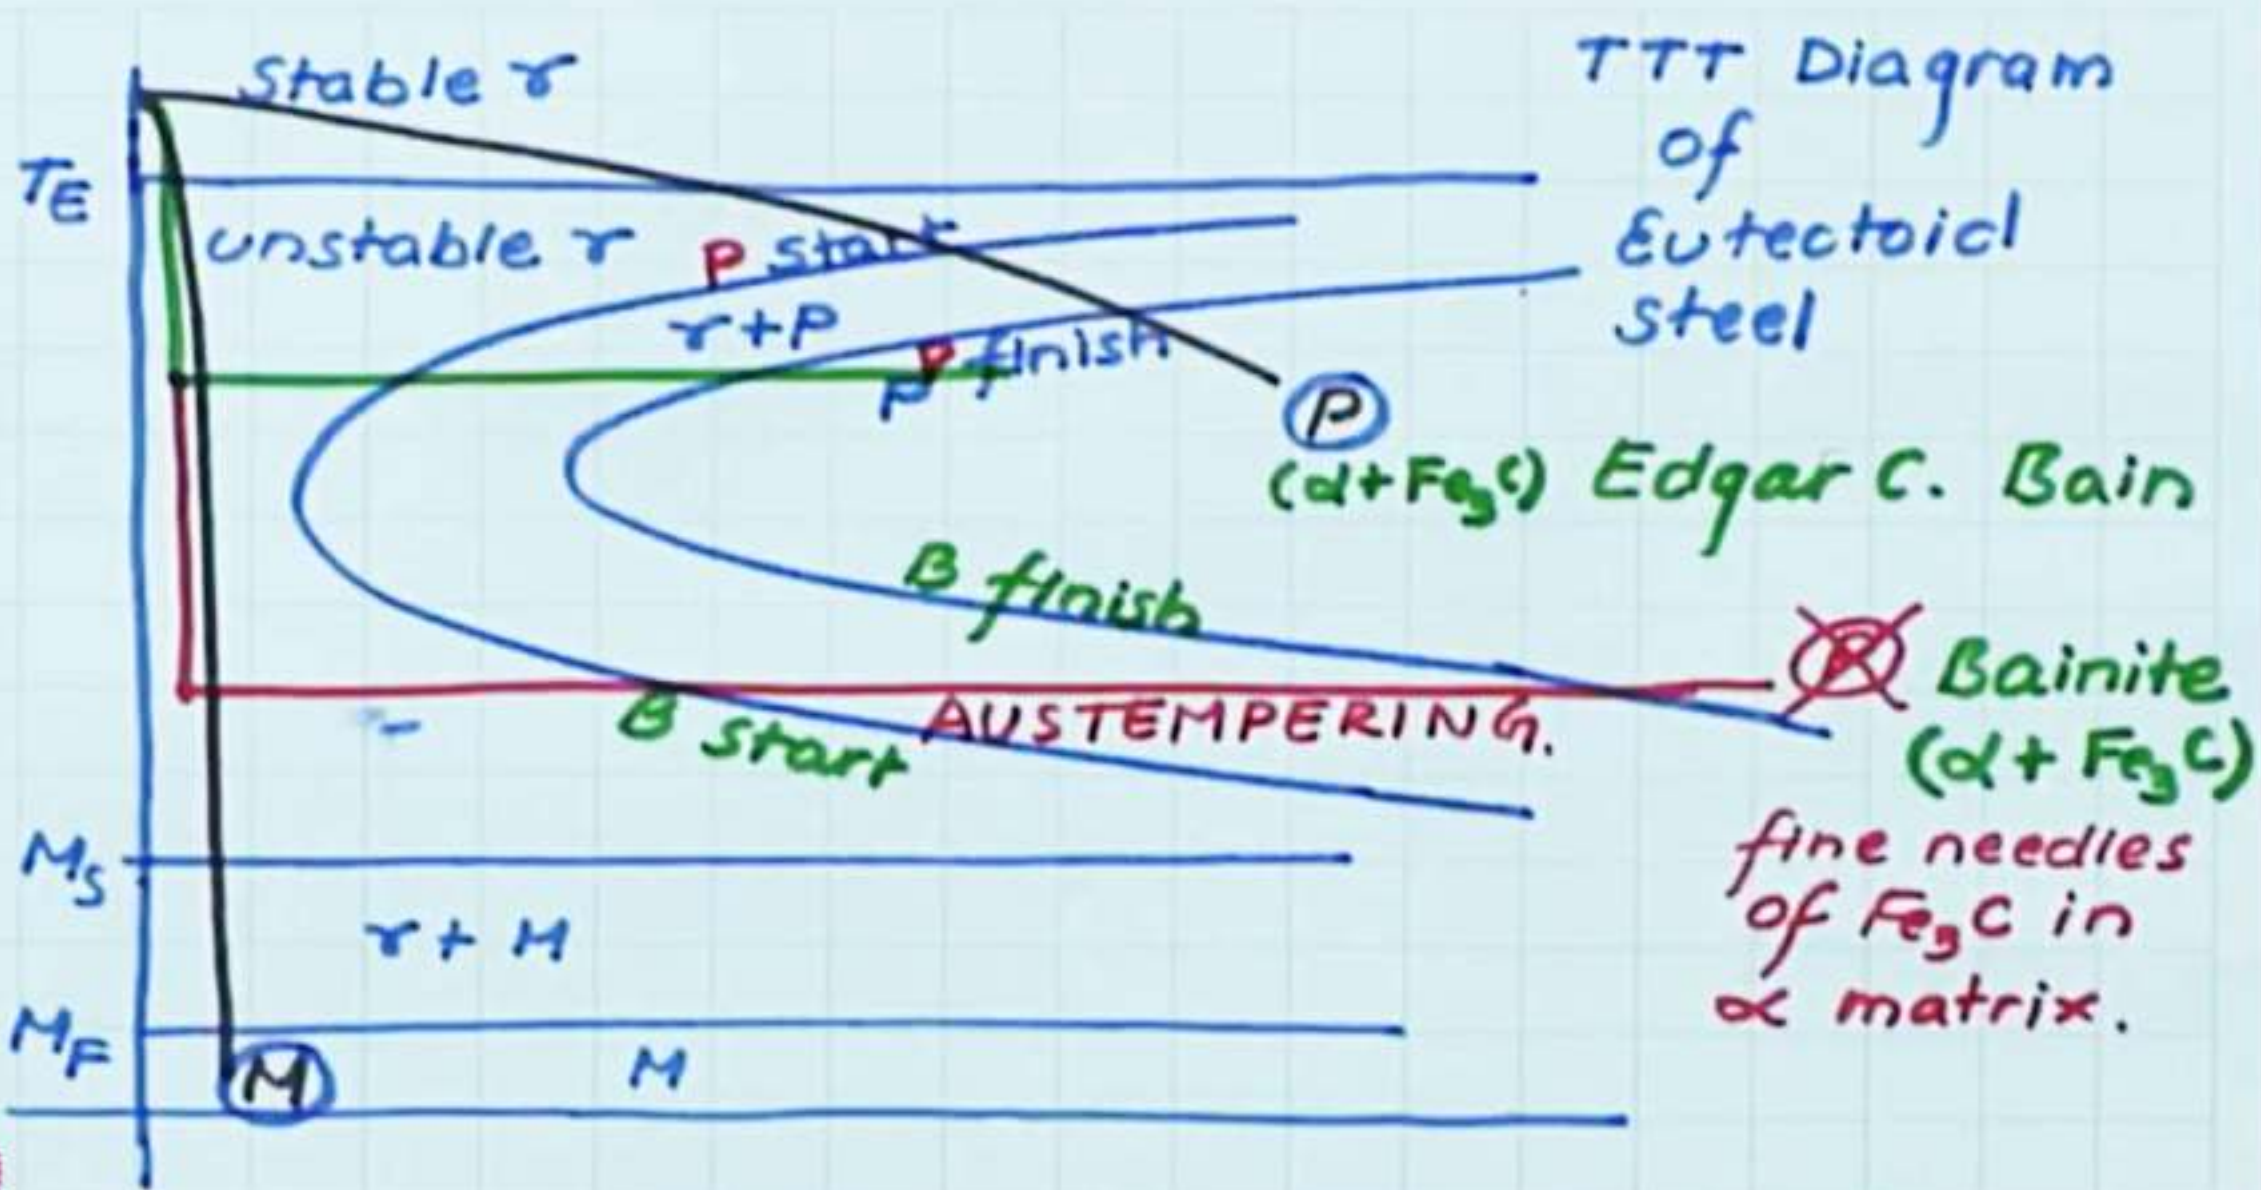 Stable γ
TTT Diagram
of
Eutectoid
steel
T_E
unstable γ
P start
γ+P
P finish
P
P
(α+Fe₃C)
Edgar C. Bain
B finish
Bainite
(α+Fe₃C)
B start
AUSTEMPERING.
fine needles
of Fe₃C in
α matrix.
M_S
γ+M
M_F
M
M